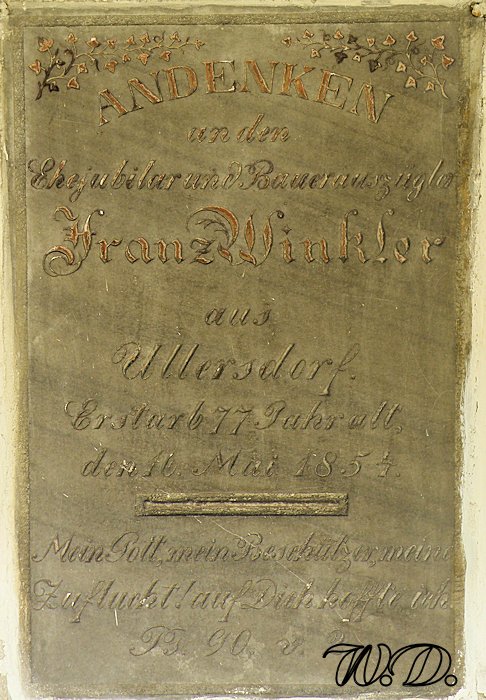 ANDENKEN
an den
Ehejubilar und Bauerauszügler
Franz Winkler
aus
Ullersdorf.
Er starb 77 Jahr alt,
den 16. Mai 1854.
Mein Gott, mein Beschützer, meine
Zuflucht! auf Dich hoffte ich.
Ps. 90. v.
W.D.